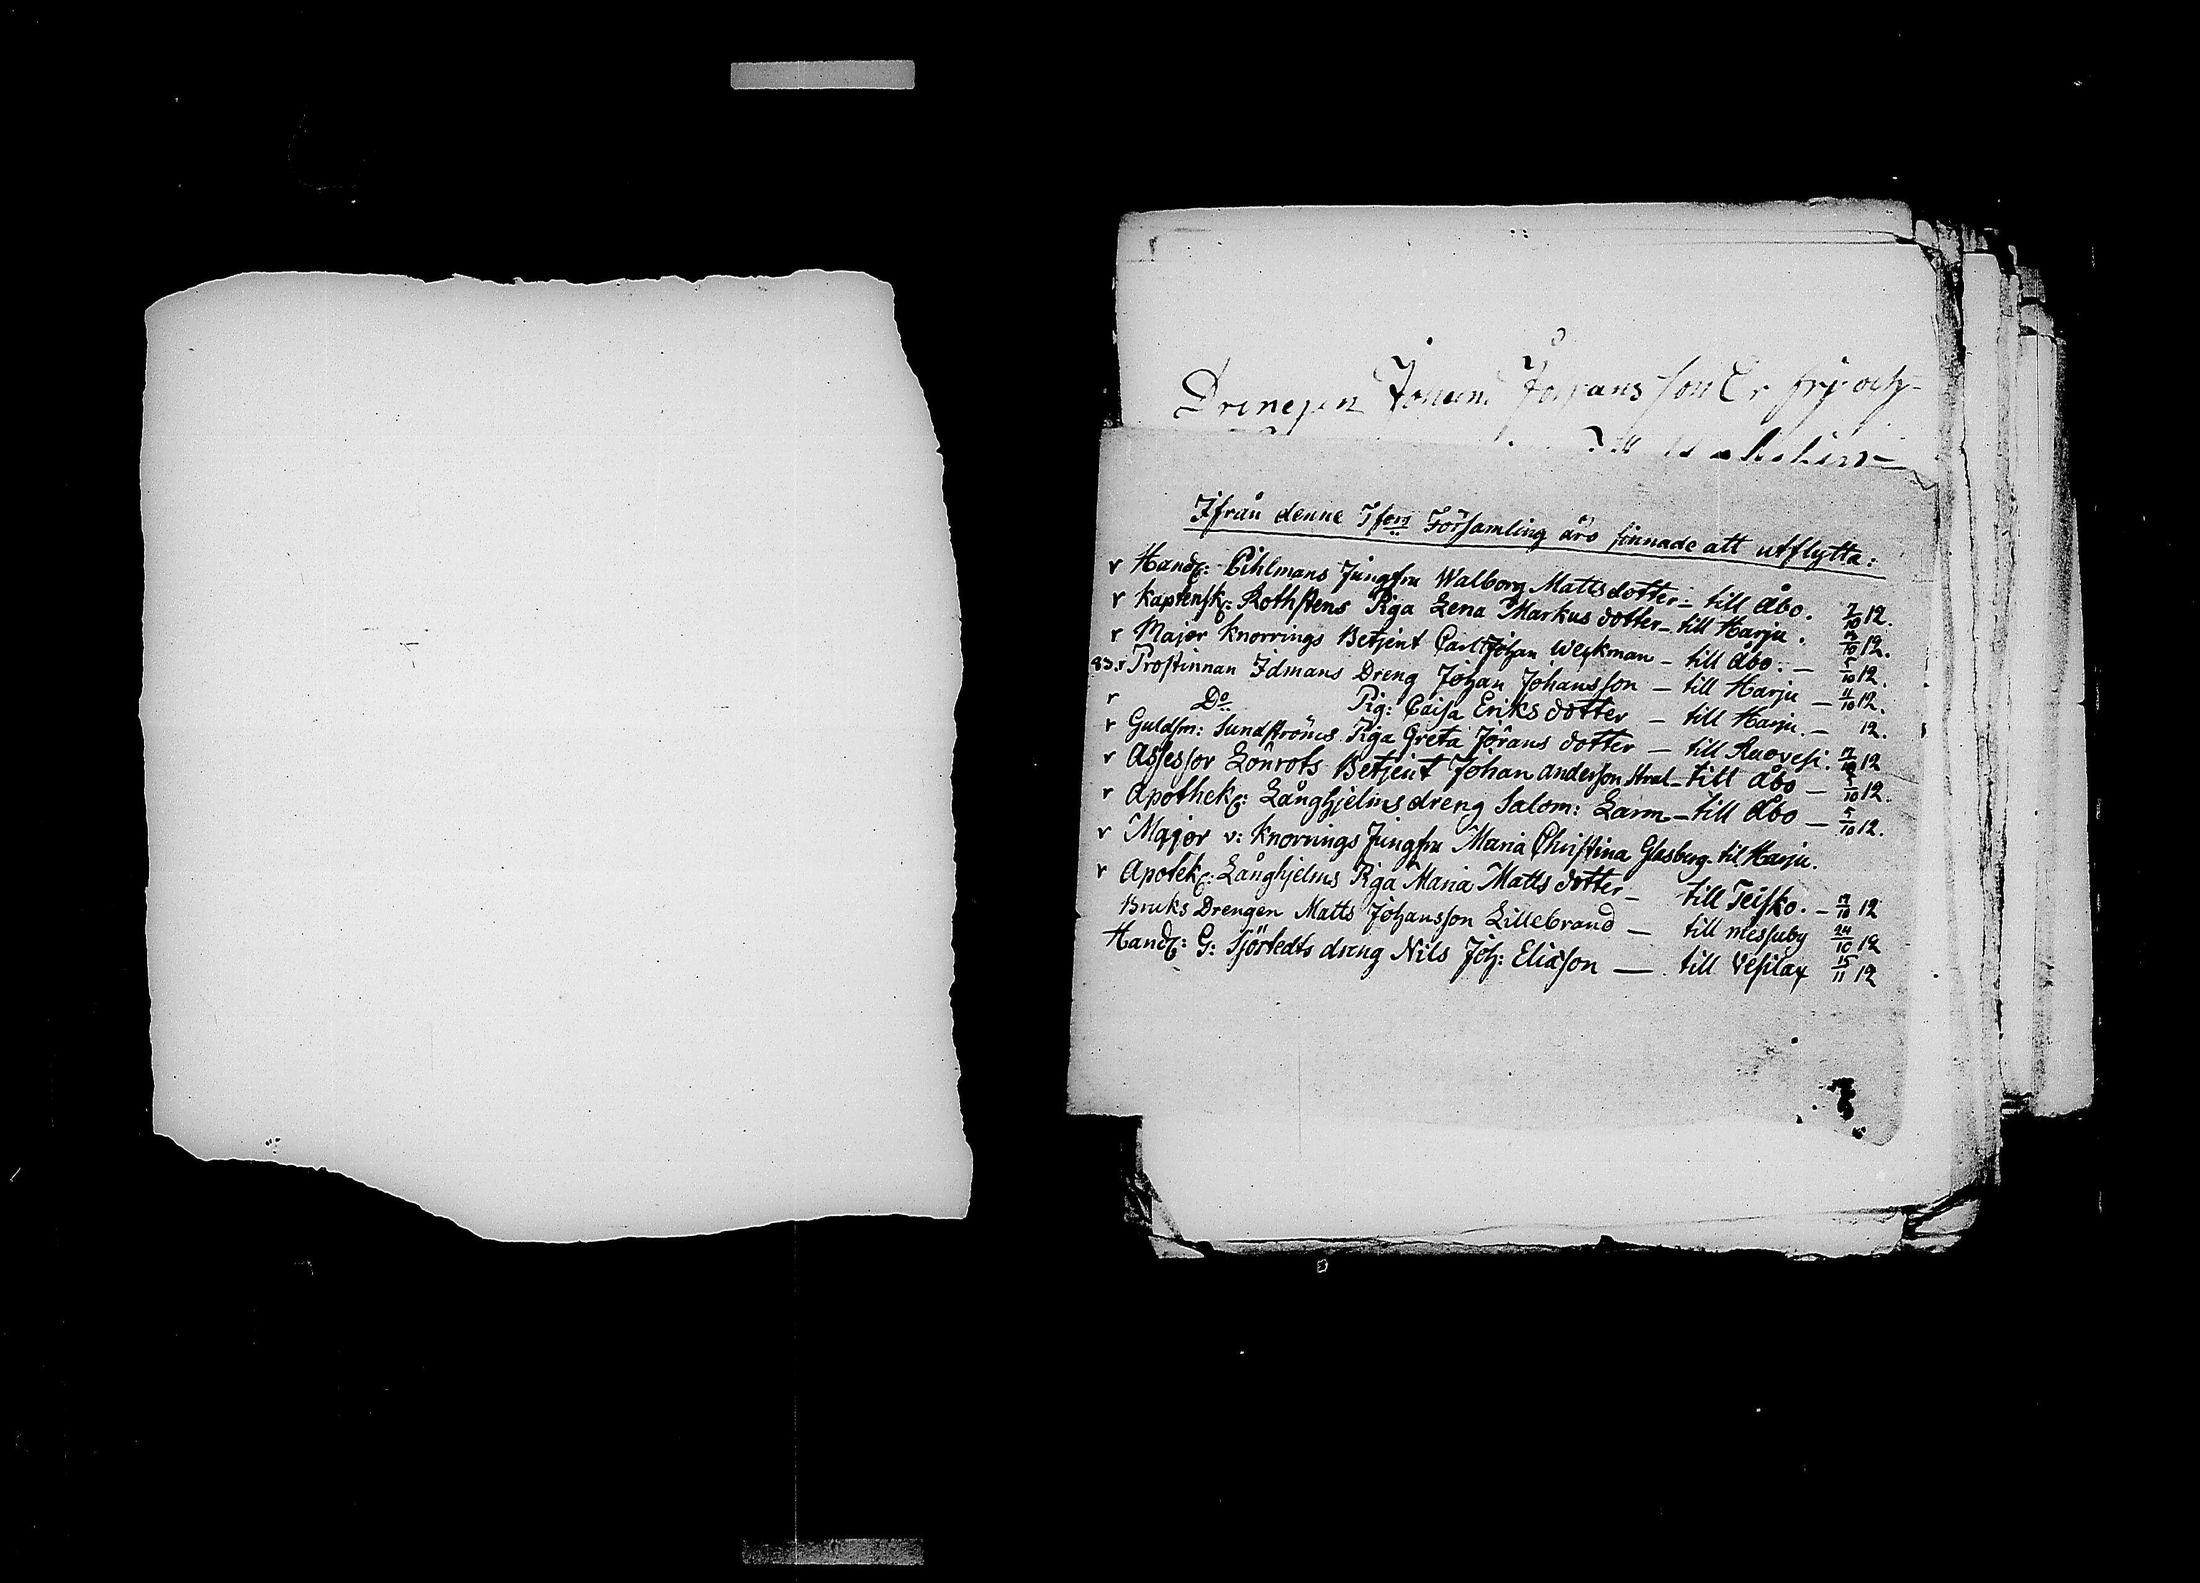 Drengen Johan Johans son Er frij och
Ifrån denne Tfors Församling äro sinnade att utflytta:
r Handl: Pihlmans Jungfru Walborg Mattsdotter – till Åbo. 7/10 12.
r Kaptensk: Rothstens Piga Lena Markus dotter – till Harju. 10 12.
r Major Knorrings Betjent Carl Johan Weckman – till Åbo. – 5/10 12.
83. r Prostinnan Idmans Dreng Johan Johansson – till Harju – 4/10 12.
r Do Pig: Caisa Eriks dotter – till Harju. – 12.
r Guldsm: Sundströms Piga Greta Jörans dotter – till Ruovesi. 12
r Assessor Lönrots Betjent Johan Anderson Stral – till Åbo – 5/10 12.
r Apothek: Långhjelms dreng Salom: Larm – till Åbo – 5/10 12.
r Major v: Knorrings Jungfru Maria Christina Glasberg till Harju.
r Apotek: Långhjelms Piga Maria Matts dotter – till Teisko. – 12/10 12
Bruks Drengen Matts Johansson Lillebrand – till messuby 24/10 12
Handl: G: Sjöstedts dreng Nils Joh: Eliasson — till Vesilax 15/11 12